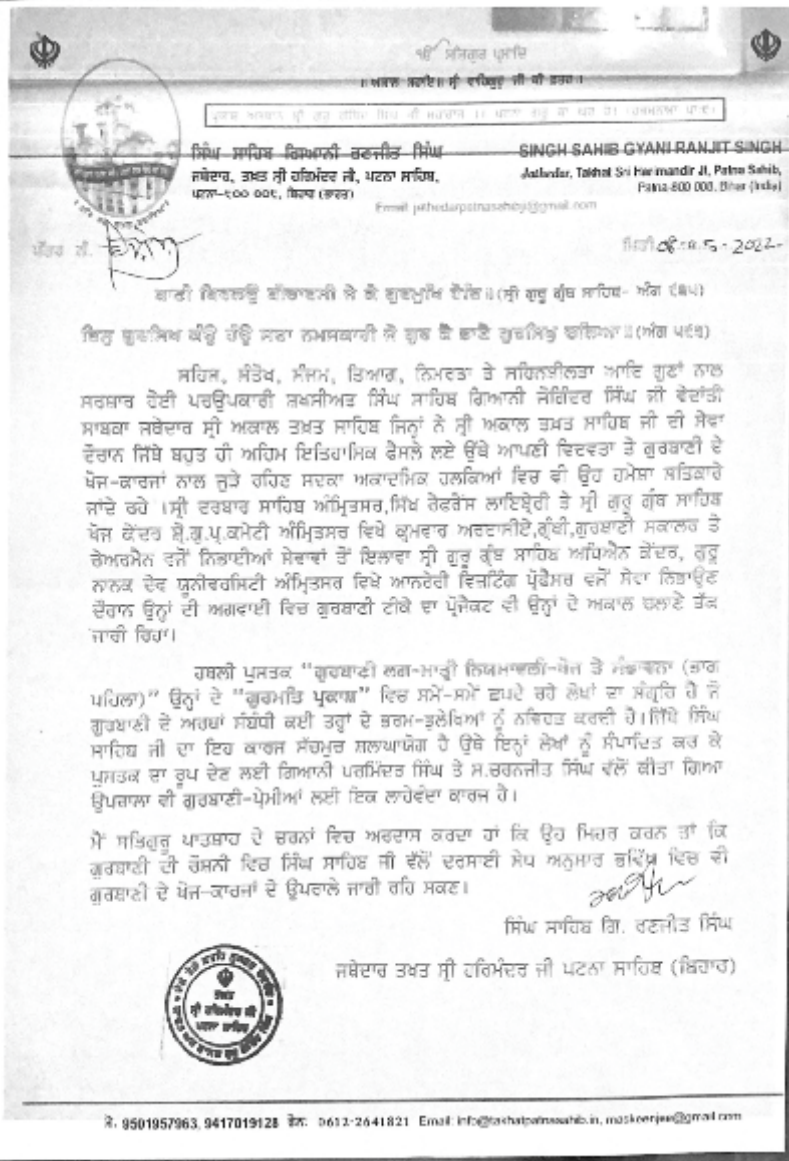 ੴ ਸਤਿਗੁਰ ਪ੍ਰਸਾਦਿ
॥ ਅਕਾਲ ਸਹਾਇ॥ ਸ੍ਰੀ ਵਾਹਿਗੁਰੂ ਜੀ ਕੀ ਫ਼ਤਹ॥
ਸਿੰਘ ਸਾਹਿਬ ਗਿਆਨੀ ਰਣਜੀਤ ਸਿੰਘ
ਜਥੇਦਾਰ, ਤਖ਼ਤ ਸ੍ਰੀ ਹਰਿਮੰਦਰ ਜੀ, ਪਟਨਾ ਸਾਹਿਬ,
ਪਟਨਾ-੮੦੦ ੦੦੮, ਬਿਹਾਰ (ਭਾਰਤ)
SINGH SAHIB GYANI RANJIT SINGH
Jathedar, Takhat Sri Harimandir Ji, Patna Sahib,
Patna-800 008, Bihar (India)
Email:
ਪੱਤਰ ਨੰ.
ਮਿਤੀ 5-2022
ਬਾਣੀ ਬਿਰਲਉ ਬੀਚਾਰਸੀ ਜੇ ਕੋ ਗੁਰਮੁਖਿ ਹੋਇ॥(ਸ੍ਰੀ ਗੁਰੂ ਗ੍ਰੰਥ ਸਾਹਿਬ- ਅੰਗ ੯੩੫)
ਤਿਸੁ ਗੁਰਸਿਖ ਕੰਉ ਹੰਉ ਸਦਾ ਨਮਸਕਾਰੀ ਜੋ ਗੁਰ ਕੈ ਭਾਣੈ ਗੁਰਸਿਖੁ ਚਲਿਆ॥(ਅੰਗ ੫੯੩)
ਸਹਿਜ, ਸੰਤੋਖ, ਸੰਜਮ, ਤਿਆਗ, ਨਿਮਰਤਾ ਤੇ ਸਹਿਨਸ਼ੀਲਤਾ ਆਦਿ ਗੁਣਾਂ ਨਾਲ
ਸਰਸ਼ਾਰ ਹੋਈ ਪਰਉਪਕਾਰੀ ਸ਼ਖਸੀਅਤ ਸਿੰਘ ਸਾਹਿਬ ਗਿਆਨੀ ਜੋਗਿੰਦਰ ਸਿੰਘ ਜੀ ਵੇਦਾਂਤੀ
ਸਾਬਕਾ ਜਥੇਦਾਰ ਸ੍ਰੀ ਅਕਾਲ ਤਖ਼ਤ ਸਾਹਿਬ ਜਿਨ੍ਹਾਂ ਨੇ ਸ੍ਰੀ ਅਕਾਲ ਤਖ਼ਤ ਸਾਹਿਬ ਜੀ ਦੀ ਸੇਵਾ
ਦੌਰਾਨ ਜਿੱਥੇ ਬਹੁਤ ਹੀ ਅਹਿਮ ਇਤਿਹਾਸਿਕ ਫੈਸਲੇ ਲਏ ਉੱਥੇ ਆਪਣੀ ਵਿਦਵਤਾ ਤੇ ਗੁਰਬਾਣੀ ਦੇ
ਖੋਜ-ਕਾਰਜਾਂ ਨਾਲ ਜੁੜੇ ਰਹਿਣ ਸਦਕਾ ਅਕਾਦਮਿਕ ਹਲਕਿਆਂ ਵਿਚ ਵੀ ਉਹ ਹਮੇਸ਼ਾ ਸਤਿਕਾਰੇ
ਜਾਂਦੇ ਰਹੇ ।ਸ੍ਰੀ ਦਰਬਾਰ ਸਾਹਿਬ ਅੰਮ੍ਰਿਤਸਰ,ਸਿੱਖ ਰੈਫਰੈਂਸ ਲਾਇਬ੍ਰੇਰੀ ਤੇ ਸ੍ਰੀ ਗੁਰੂ ਗ੍ਰੰਥ ਸਾਹਿਬ
ਖੋਜ ਕੇਂਦਰ ਸ਼੍ਰੋ.ਗੁ.ਪ੍ਰ.ਕਮੇਟੀ ਅੰਮ੍ਰਿਤਸਰ ਵਿਖੇ ਕ੍ਰਮਵਾਰ ਅਰਦਾਸੀਏ,ਗ੍ਰੰਥੀ,ਗੁਰਬਾਣੀ ਸਕਾਲਰ ਤੇ
ਚੇਅਰਮੈਨ ਵਜੋਂ ਨਿਭਾਈਆਂ ਸੇਵਾਵਾਂ ਤੋਂ ਇਲਾਵਾ ਸ੍ਰੀ ਗੁਰੂ ਗ੍ਰੰਥ ਸਾਹਿਬ ਅਧਿਐਨ ਕੇਂਦਰ, ਗੁਰੂ
ਨਾਨਕ ਦੇਵ ਯੂਨੀਵਰਸਿਟੀ ਅੰਮ੍ਰਿਤਸਰ ਵਿਖੇ ਆਨਰੇਰੀ ਵਿਜ਼ਟਿੰਗ ਪ੍ਰੋਫੈਸਰ ਵਜੋਂ ਸੇਵਾ ਨਿਭਾਉਣ
ਦੌਰਾਨ ਉਨ੍ਹਾਂ ਦੀ ਅਗਵਾਈ ਵਿਚ ਗੁਰਬਾਣੀ ਟੀਕੇ ਦਾ ਪ੍ਰੋਜੈਕਟ ਵੀ ਉਨ੍ਹਾਂ ਦੇ ਅਕਾਲ ਚਲਾਣੇ ਤੱਕ
ਜਾਰੀ ਰਿਹਾ।
ਹਥਲੀ ਪੁਸਤਕ "ਗੁਰਬਾਣੀ ਲਗ-ਮਾਤ੍ਰੀ ਨਿਯਮਾਵਲੀ-ਖੋਜ ਤੇ ਸੰਭਾਵਨਾ (ਭਾਗ
ਪਹਿਲਾ)" ਉਨ੍ਹਾਂ ਦੇ "ਗੁਰਮਤਿ ਪ੍ਰਕਾਸ਼" ਵਿਚ ਸਮੇਂ-ਸਮੇਂ ਛਪਦੇ ਰਹੇ ਲੇਖਾਂ ਦਾ ਸੰਗ੍ਰਹਿ ਹੈ ਜੋ
ਗੁਰਬਾਣੀ ਦੇ ਅਰਥਾਂ ਸੰਬੰਧੀ ਕਈ ਤਰ੍ਹਾਂ ਦੇ ਭਰਮ-ਭੁਲੇਖਿਆਂ ਨੂੰ ਨਵਿਰਤ ਕਰਦੀ ਹੈ।ਜਿੱਥੇ ਸਿੰਘ
ਸਾਹਿਬ ਜੀ ਦਾ ਇਹ ਕਾਰਜ ਸੱਚਮੁਚ ਸ਼ਲਾਘਾਯੋਗ ਹੈ ਉਥੇ ਇਨ੍ਹਾਂ ਲੇਖਾਂ ਨੂੰ ਸੰਪਾਦਿਤ ਕਰ ਕੇ
ਪੁਸਤਕ ਦਾ ਰੂਪ ਦੇਣ ਲਈ ਗਿਆਨੀ ਪਰਮਿੰਦਰ ਸਿੰਘ ਤੇ ਸ.ਚਰਨਜੀਤ ਸਿੰਘ ਵੱਲੋਂ ਕੀਤਾ ਗਿਆ
ਉਪਰਾਲਾ ਵੀ ਗੁਰਬਾਣੀ-ਪ੍ਰੇਮੀਆਂ ਲਈ ਇਕ ਲਾਹੇਵੰਦਾ ਕਾਰਜ ਹੈ।
ਮੈਂ ਸਤਿਗੁਰੂ ਪਾਤਸ਼ਾਹ ਦੇ ਚਰਨਾਂ ਵਿਚ ਅਰਦਾਸ ਕਰਦਾ ਹਾਂ ਕਿ ਉਹ ਮਿਹਰ ਕਰਨ ਤਾਂ ਕਿ
ਗੁਰਬਾਣੀ ਦੀ ਰੋਸ਼ਨੀ ਵਿਚ ਸਿੰਘ ਸਾਹਿਬ ਜੀ ਵੱਲੋਂ ਦਰਸਾਈ ਸੇਧ ਅਨੁਸਾਰ ਭਵਿੱਖ ਵਿਚ ਵੀ
ਗੁਰਬਾਣੀ ਦੇ ਖੋਜ-ਕਾਰਜਾਂ ਦੇ ਉਪਰਾਲੇ ਜਾਰੀ ਰਹਿ ਸਕਣ।
ਸਿੰਘ ਸਾਹਿਬ ਗਿ. ਰਣਜੀਤ ਸਿੰਘ
ਜਥੇਦਾਰ ਤਖਤ ਸ੍ਰੀ ਹਰਿਮੰਦਰ ਜੀ ਪਟਨਾ ਸਾਹਿਬ (ਬਿਹਾਰ)
ਤਖਤ
ਸ੍ਰੀ ਹਰਿਮੰਦਰ ਜੀ
ਪਟਨਾ ਸਾਹਿਬ
ਮੋ. 9501957963, 9417019128 ਫੋਨ. 0612-2641821 Email: info@takhatpatnasahib.in, maskeenjee@gmail.com